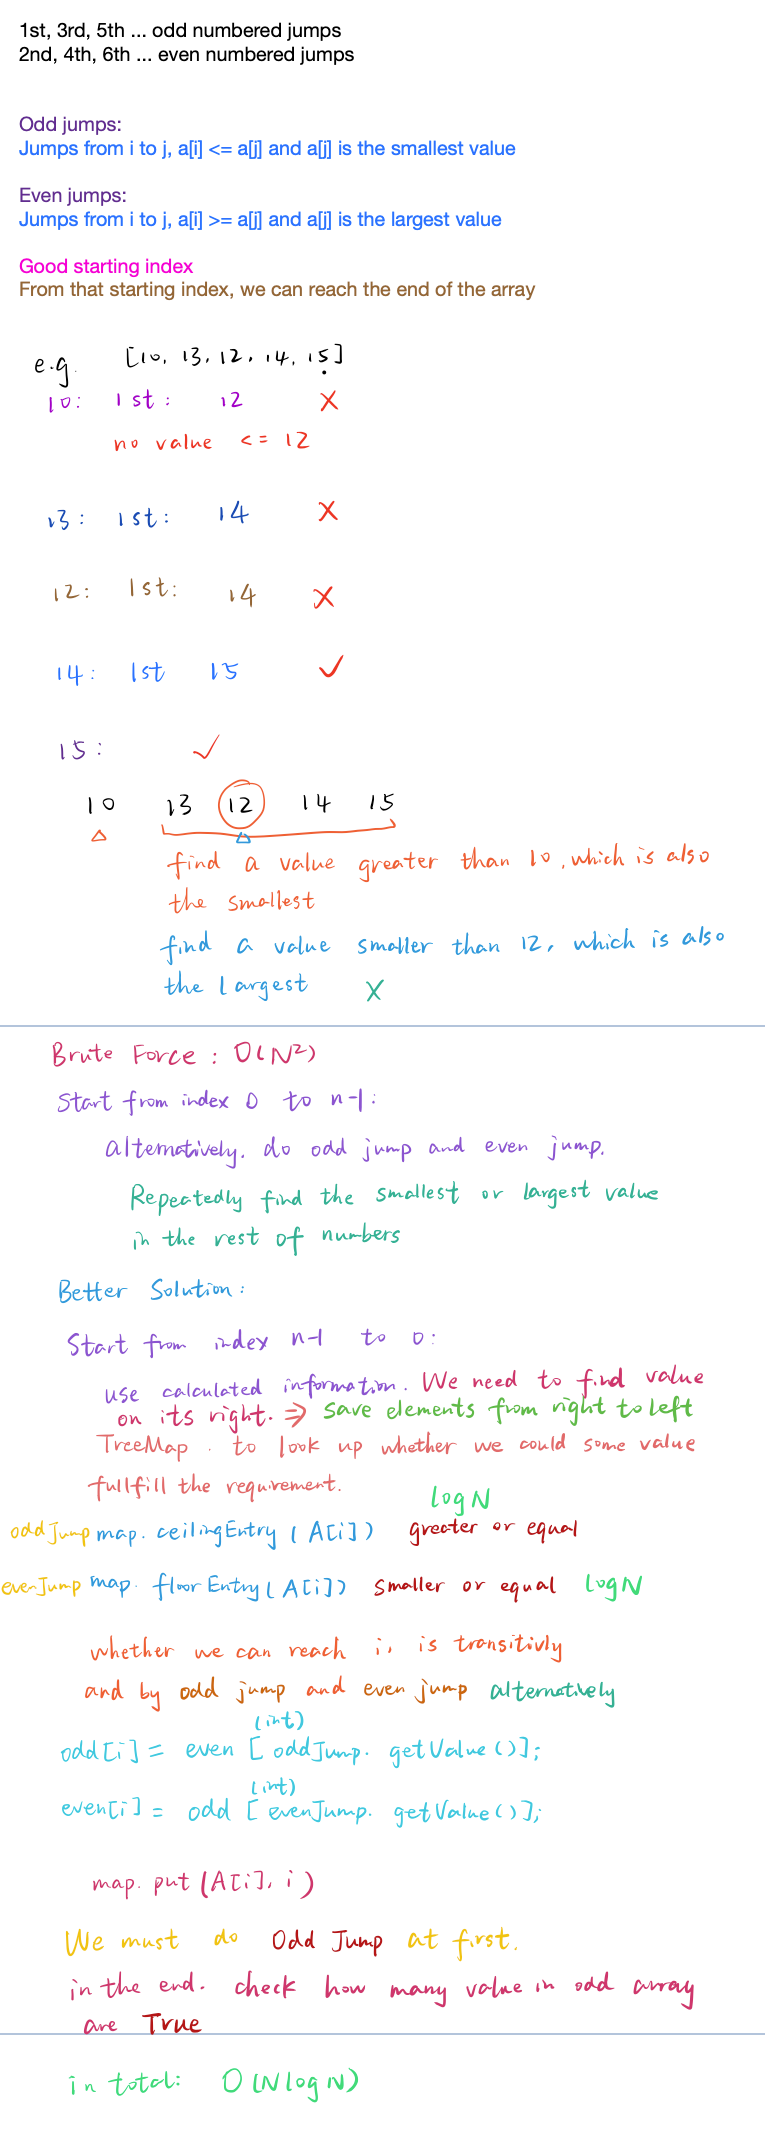 1st, 3rd, 5th ... odd numbered jumps
2nd, 4th, 6th ... even numbered jumps
Odd jumps:
Jumps from i to j, a[i] <= a[j] and a[j] is the smallest value
Even jumps:
Jumps from i to j, a[i] >= a[j] and a[j] is the largest value
Good starting index
From that starting index, we can reach the end of the array
e.g. [10, 13, 12, 14, 15]
10: 1st: 12 X
no value <= 12
13: 1st: 14 X
12: 1st: 14 X
14: 1st 15 ✓
15: ✓
10 13 12 14 15
find a value greater than 10, which is also
the smallest
find a value smaller than 12, which is also
the largest X
Brute Force: O(N²)
Start from index 0 to n-1:
alternatively. do odd jump and even jump.
Repeatedly find the smallest or largest value
in the rest of numbers
Better Solution:
Start from index n-1 to 0:
use calculated information. We need to find value
on its right. ⇒ Save elements from right to left
TreeMap. to look up whether we could some value
fullfill the requirement.
logN
oddJump map. ceilingEntry (A[i]) greater or equal
evenJump map. floorEntry (A[i]) smaller or equal logN
whether we can reach i, is transitivly
and by odd jump and even jump alternatively
(int)
odd[i] = even [oddJump. getValue()];
(int)
even[i] = odd [evenJump. getValue()];
map. put (A[i], i)
We must do Odd Jump at first.
in the end. check how many value in odd array
are True
in total: O(NlogN)